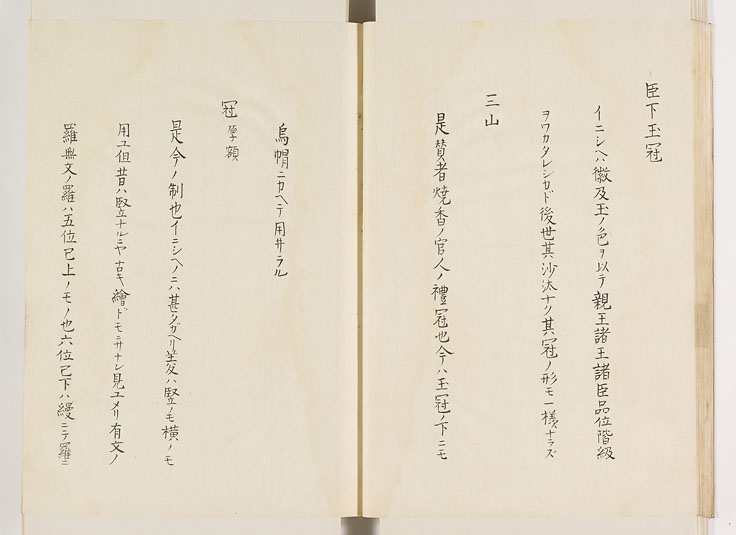 臣下玉冠
イニシヘハ徽及玉ノ色ヲ以テ親王諸王諸臣品位階級
ヲワカタレシカド後世其沙汰ナク其冠ノ形モ一様ナラズ
三山
是賛者焼香ノ官人ノ禮冠也今ハ玉冠ノ下ニモ
烏帽ニカヘテ用井ラル
冠 厚額
是今ノ制也イニシヘノニハ甚タガヘリ差ハ竪ノモ横ノモ
用ユ但昔ハ竪ナルニヤ古キ繪ドモニサナシ見ユメリ有文ノ
羅無文ノ羅ハ五位已上ノモノ也六位已下ハ縵ニテ羅ニ